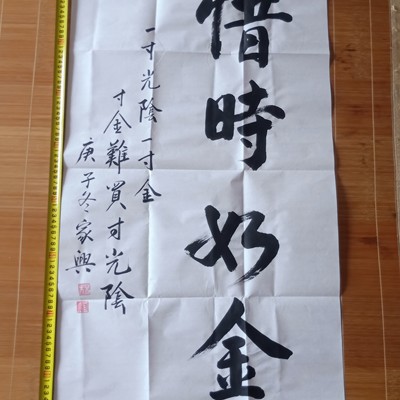 惜時如金
一寸光陰一寸金
寸金難買寸光陰
庚子冬家興